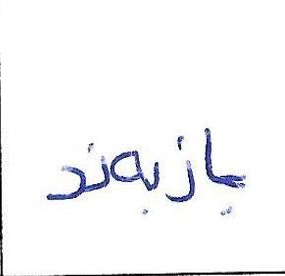 یازبەند